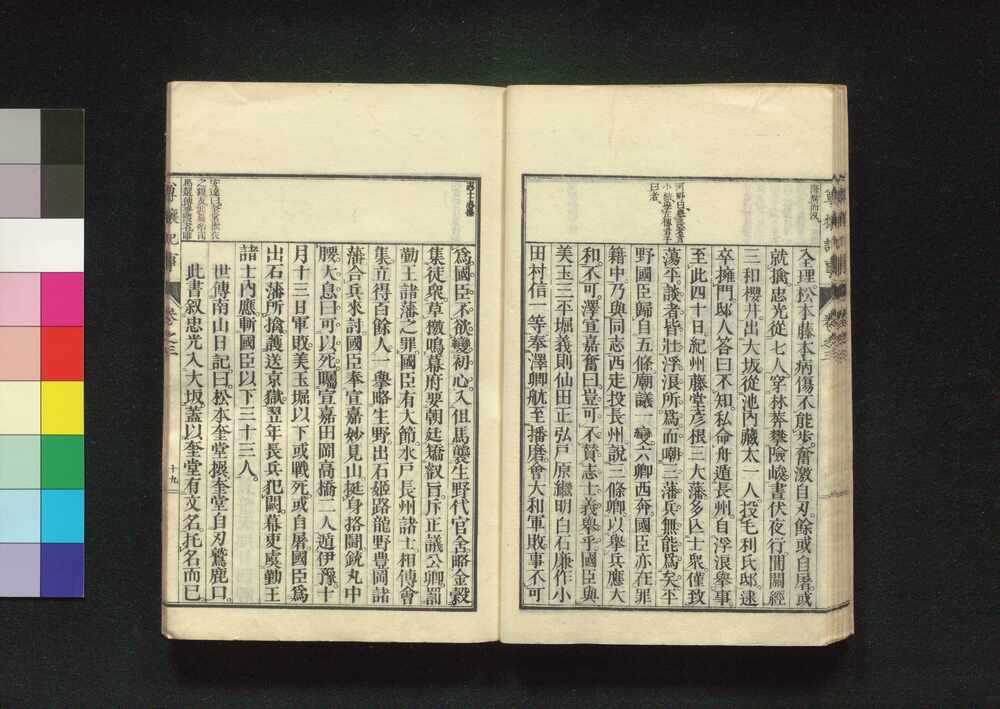 全理。松本藤本病傷不能歩。奮激自刃。餘或自屠。或
就擒。忠光從七人。穿林莽。攀險巇。晝伏夜行。間關經
三和櫻井。出大坂。從池內藏太一人。投毛利氏邸。逮
卒擁門。邸人答曰不知。私命舟遁長州。自浮浪擧事
至此四十日。紀州藤堂彥根三大藩。多亾士衆。僅致
蕩平。談者皆壯浮浪所爲。而嘲三藩兵無能爲矣。平
野國臣歸自五條。廟議一變。六卿西奔。國臣亦在罪
籍中。乃與同志西走。投長州。說三條卿。以擧兵應大
和。不可。澤宣嘉奮曰。豈可不贊志士義擧乎。國臣與
美玉三平堀義則仙田正弘戶原繼明白石廉作小
田村信一等。奉澤卿航至播磨。會大和軍敗。事不可
爲。國臣不欲變初心。入但馬。襲生野代官舍。略金穀。
集徒衆。草檄鳴幕府要朝廷。矯叡旨。斥正議公卿。罰
勤王諸藩之罪。國臣有大節。水戶長州諸士。相傳會
集。立得百餘人。一擧略生野。出石姬路龍野豐岡諸
藩合兵來討。國臣奉宣嘉妙見山。挺身搭鬪。銃丸中
腰。大息曰。可以死。屬宣嘉田岡高橋二人。遁伊豫。十
月十三日。軍敗。美玉堀以下或戰死。或自屠。國臣爲
出石藩所擒。護送京獄。翌年長兵犯闕。幕吏虞勤王
諸士內應。斬國臣以下三十三人。
世傳南山日記。曰。松本奎堂撰。奎堂自刃鷲鹿口。
此書叙忠光入大坂。蓋以奎堂有文名。托名而已
十九